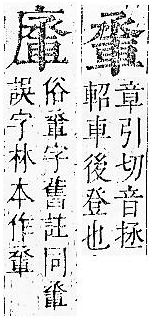 章引切音拯
軺車後登也
俗字舊註同
誤字林本作